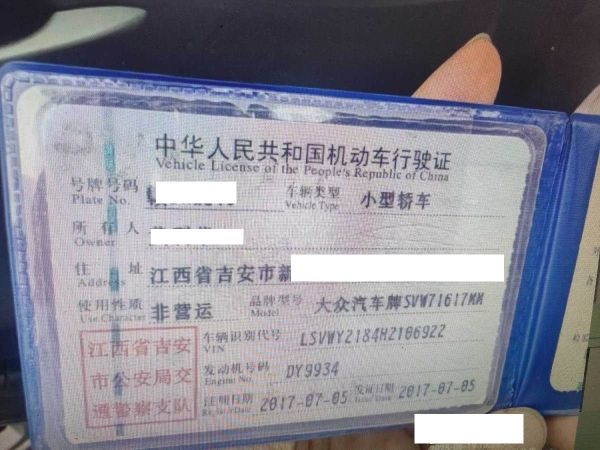 中华人民共和国机动车行驶证
Vehicle License of the People's Republic of China
号牌号码 车辆类型 小型轿车
Plate No. Vehicle Type
所有人
Owner
住址 江西省吉安市新
Address
使用性质 非营运 品牌型号 大众汽车牌SVW71617MM
Use Character Model
江西省吉安
市公安局交
通警察支队
车辆识别代号 LSVWY2184H2106922
VIN
发动机号码 DY9934
Engine No.
注册日期 2017-07-05 发证日期 2017-07-05
Register Date Issue Date